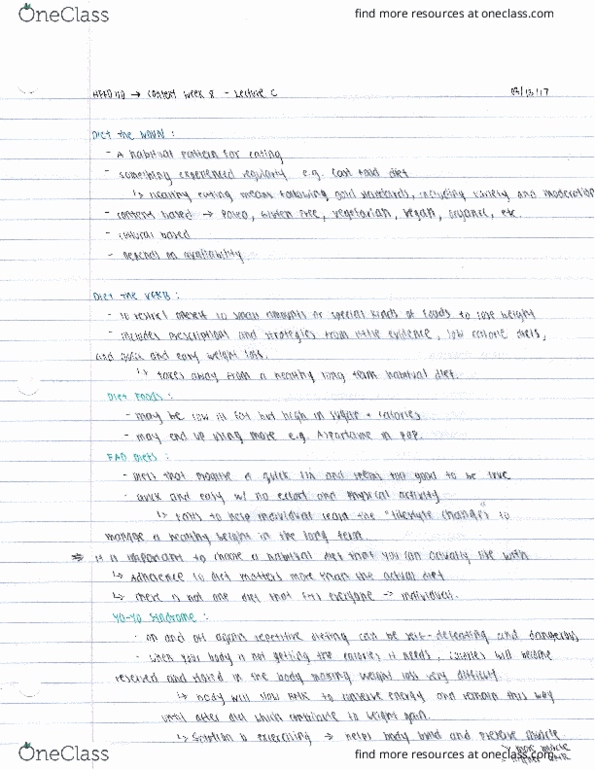 OneClass
find more resources at oneclass.com
→ Content week 8 - Lecture C
Diet the NOUN :
- A habitual pattern for eating
- something experienced regularly e.g. fast food diet
↳ healthy eating means following gold standards, including variety and moderation
- content based → Paleo, Gluten Free, vegetarian, vegan, organic, etc.
- cultural based
- depends on availability
Diet the VERB :
- to restrict oneself to small amounts or special kinds of foods to lose weight
- includes prescriptions and strategies from little evidence, low calorie diets,
and quick and easy weight loss.
↳ takes away from a healthy long term habitual diet.
Diet Foods :
- may be low in fat but high in sugar + calories
- may end up using more e.g. Aspartame in pop.
FAD Diets :
- diets that promise a quick fix and seems too good to be true
- quick and easy w/ no effort and physical activity
↳ fails to help individual learn the "lifestyle changes" to
manage a healthy weight in the long term.
it is important to choose a habitual diet that you can actually live with
↳ Adherence to diet matters more than the actual diet
↳ there is not one diet that fits everyone → individual.
Yo-Yo Syndrome :
- on and off again repetitive dieting can be self-defeating and dangerous
- when your body is not getting the calories it needs, calories will become
reserved and stored in the body making weight loss very difficult.
↳ body will slow BMR to conserve energy and remain this way
until after diet which contribute to weight gain.
↳ Solution is exercising → helps body build and preserve muscle
↳ more muscle
OneClass
find more resources at oneclass.com